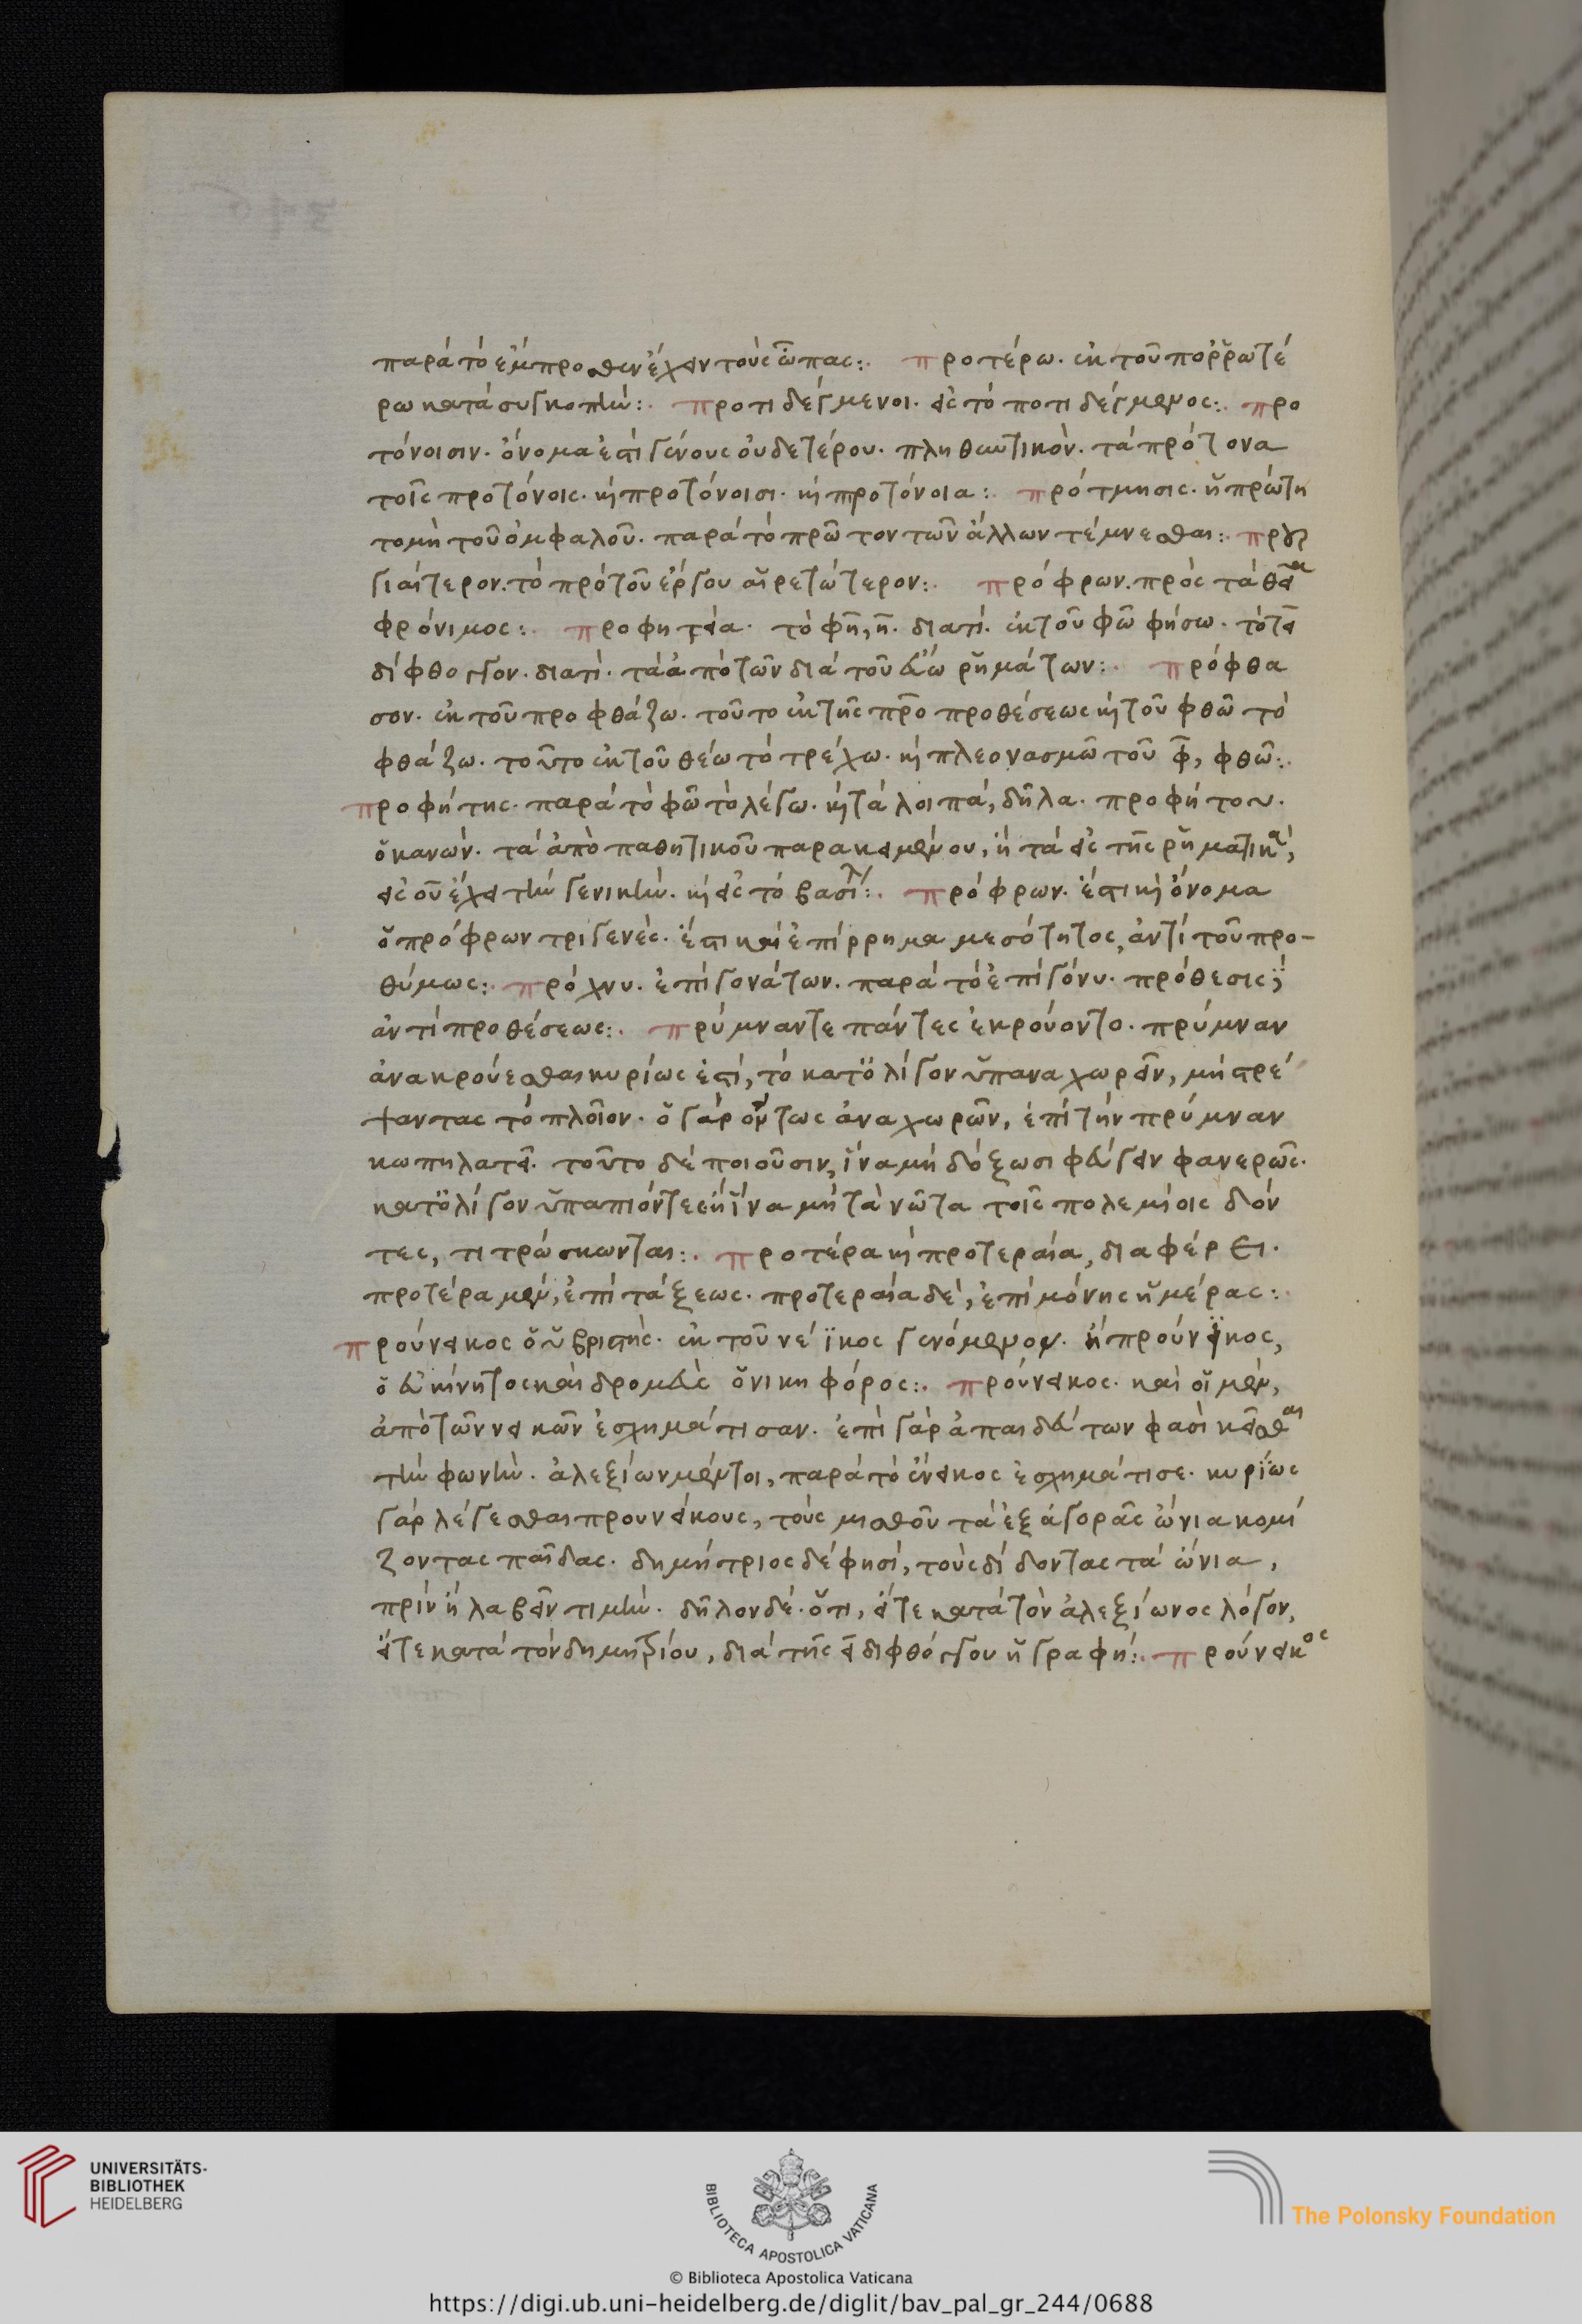 παρά τό ἔμπροσθεν ἔχειν τοὺς ὦπας:. προτέρω. ἐκ τοῦ πορρωτέ
ρω κατά συγκοπήν:. προτιδέγμενοι. εἰς τό ποτιδέγμενος:. προ
τόνοισιν. ὄνομα ἐστί γένους οὐδετέρου. πληθυντικόν. τά πρότονα
τοῖς προτόνοις. καὶ προτόνοισι. καὶ προτόνοια:. πρότμησις. ἡ πρώτη
τομὴ τοῦ ὀμφαλοῦ. παρά τό πρῶτον τῶν ἄλλων τέμνεσθαι:. πρου
γιαίτερον. τό πρό τοῦ ἔργου αἱρετώτερον:. πρόφρων. πρός τά θεῖα
φρόνιμος:. προφητεία. τὸ φη, η. διατί. ἐκ τοῦ φῶ φήσω. τό τει
δίφθογγον. διατί. τά ἀπό τῶν διά τοῦ εύω ῥημάτων:. πρόφθα
σον. ἐκ τοῦ προφθάζω. τοῦτο ἐκ τῆς προ προθέσεως καὶ τοῦ φθῶ τό
φθάζω. τοῦτο ἐκ τοῦ θέω τό τρέχω. καὶ πλεονασμῶ τοῦ φ, φθῶ:.
προφήτης. παρά τό φῶ τὸ λέγω. καὶ τά λοιπά, δῆλα. προφήτου.
ὁ κανών. τά ἀπὸ παθητικοῦ παρακειμένου, ἢ τά εἰς της ῥηματικά,
εἰς ου ἔχει τήν γενικήν. καὶ εἰς τό βασι:. πρόφρων. ἔστι καὶ ὄνομα
ὁ πρόφρων τριγενές. ἔστι καί ἐπίρρημα μεσότητος, ἀντί τοῦ προ-
θύμως:. πρόχνυ. ἐπί γονάτων. παρά τό ἐπί γόνυ. πρόθεσις
ἀντί προθέσεως:. πρύμναν τε πάντες ἐκρούοντο. πρύμναν
ἀνακρούεσθαι κυρίως ἐστί, τό κατ' ὀλίγον ὑπαναχωρεῖν, μή στρέ
ψαντας τό πλοῖον. ὁ γάρ οὕτως ἀναχωρῶν, ἐπί τήν πρύμναν
κωπηλατεῖ. τοῦτο δέ ποιοῦσιν, ἵνα μή δόξωσι φεύγειν φανερῶς.
κατ' ὀλίγον ὑπαπιόντες ἢ ἵνα μή τὰ νῶτα τοῖς πολεμίοις δόν
τες, τιτρώσκωνται:. προτέρα καὶ προτεραία, διαφέρει.
προτέρα μέν, ἐπί τάξεως. προτεραία δέ, ἐπί μόνης ἡμέρας:.
προύνεικος ὁ ὑβριστής. ἐκ τοῦ νεῖκος γενόμενον. ἢ προύνεικος,
ὁ εὐκίνητος καὶ δρομεὺς ὁ νικηφόρος:. προύνεικος. καὶ οἱ μέν,
ἀπό τῶν νεικῶν ἐσχημάτισαν. ἐπί γάρ ἀπαιδεύτων φασί κεῖσθαι
τήν φωνήν. ἀλεξίων μέντοι, παρά τό ἐνεῖκος ἐσχημάτισε. κυρίως
γάρ λέγεσθαι προυνείκους, τούς μισθοῦ τά ἐξ ἀγορᾶς ὤνια κομί
ζοντας παῖδας. δημήτριος δέ φησί, τοὺς δίδοντας τά ὤνια,
πρίν ἢ λαβεῖν τιμήν. δῆλον δέ. ὅτι, εἴτε κατά τόν ἀλεξίωνος λόγον,
εἴτε κατά τόν δημητρίου, διά τῆς ει διφθόγγου ἡ γραφή:. προύνεικος
UNIVERSITÄTS-
BIBLIOTHEK
HEIDELBERG
BIBLIOTECA APOSTOLICA VATICANA
The Polonsky Foundation
© Biblioteca Apostolica Vaticana
https://digi.ub.uni-heidelberg.de/diglit/bav_pal_gr_244/0688